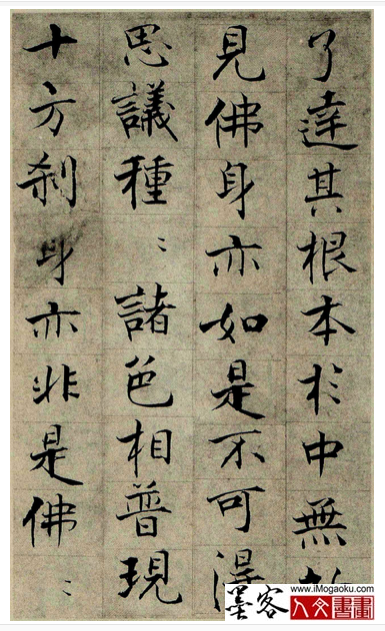 了達其根本於中無
見佛身亦如是不可得
思議種〻諸色相普現
十方刹身亦非是佛〻
www.iMogaoku.com
墨客